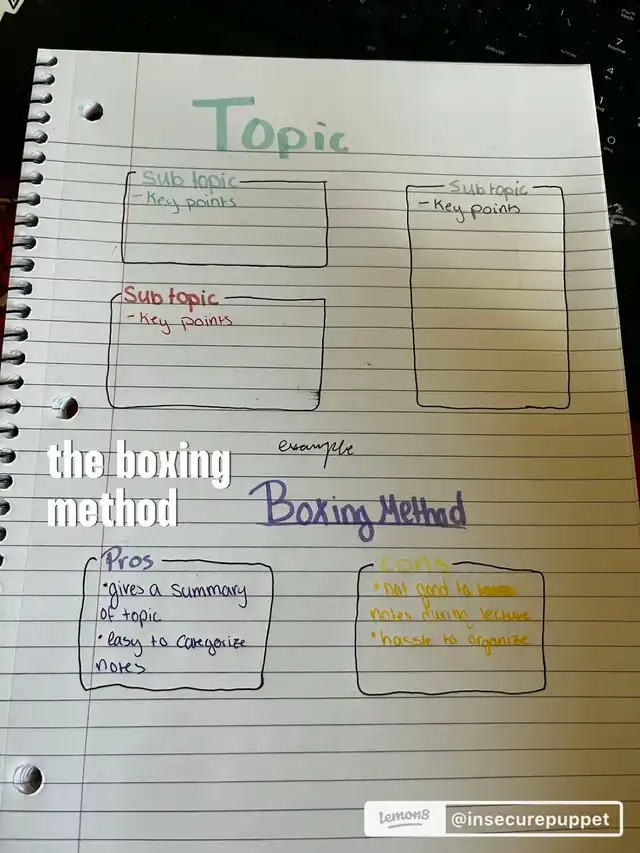 Topic
Sub topic
- Key points
Sub topic
- Key points
Sub topic
- Key points
the boxing
method
example
Boxing Method
Pros
• gives a summary
of topic
• easy to categorize
notes
Cons
• not good to
notes during lecture
• hassle to organize
Lemon8
@insecurepuppet